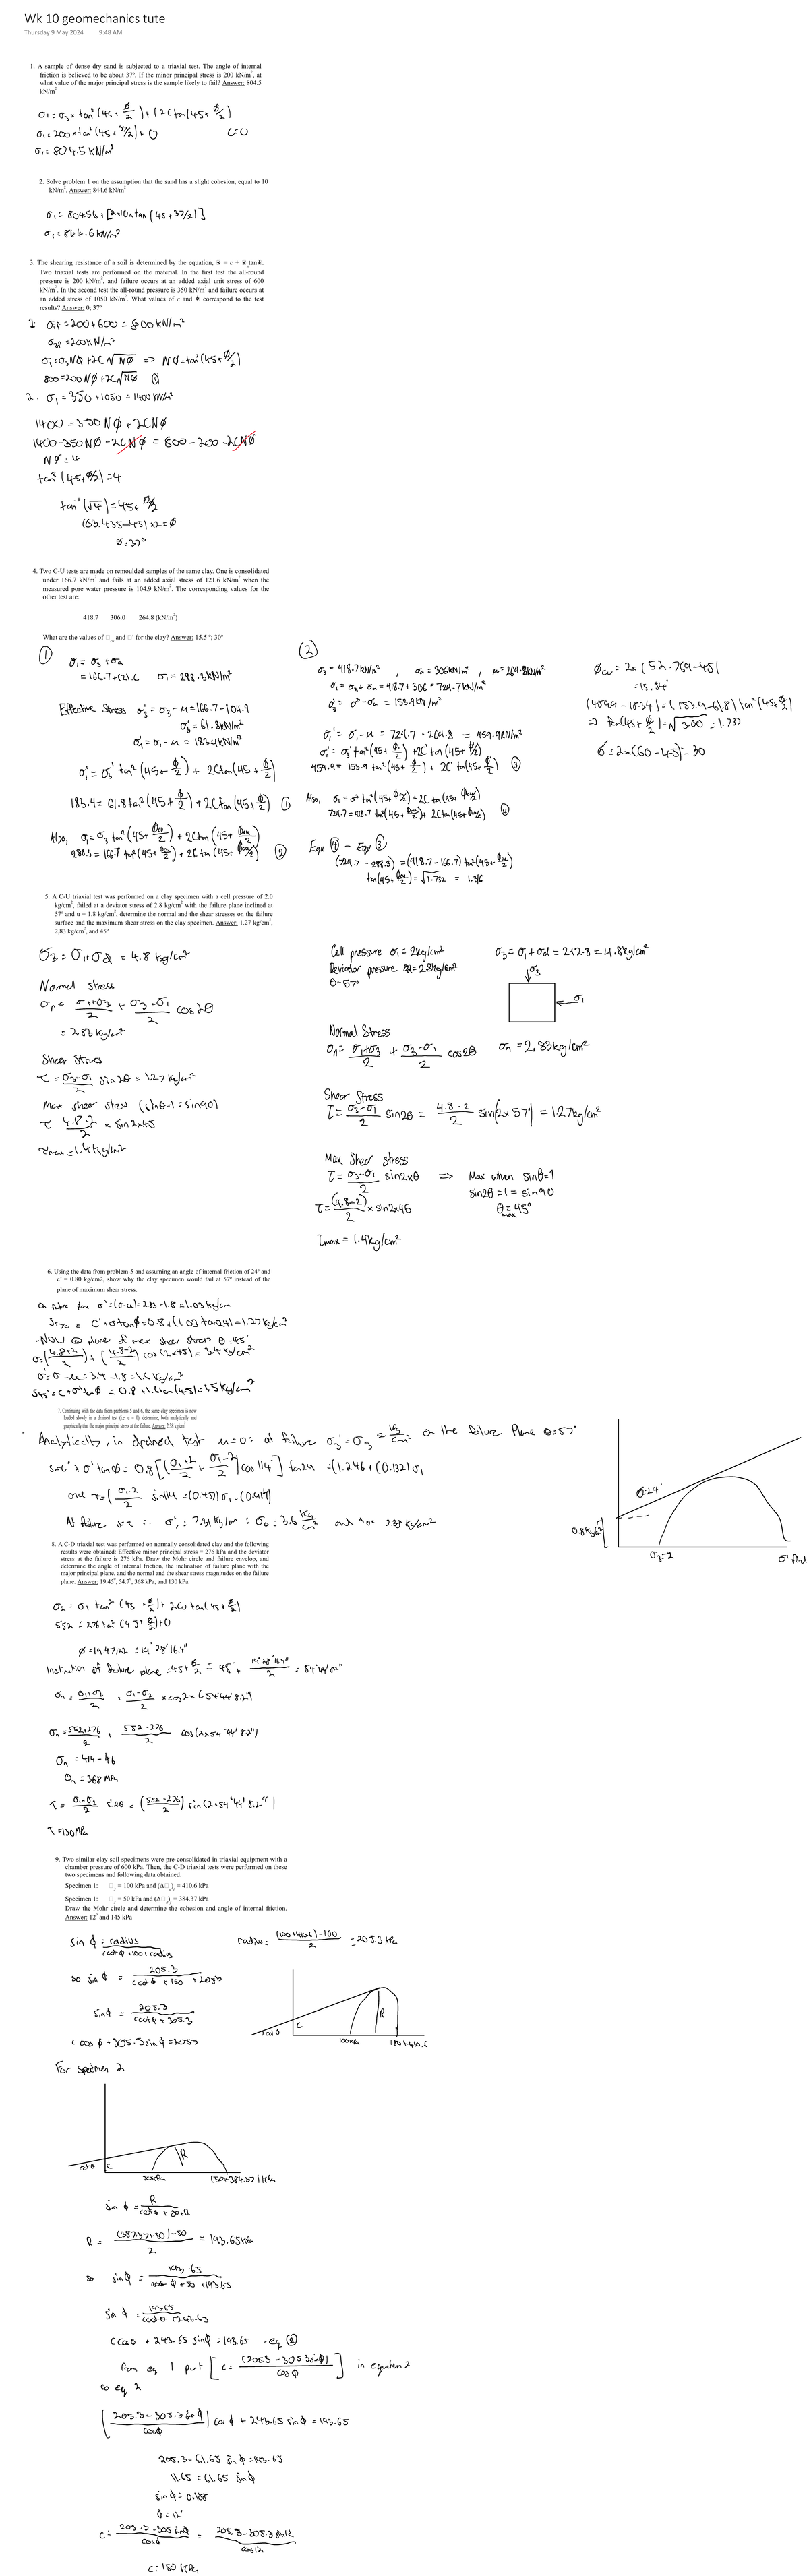 Wk 10 geomechanics tute
Thursday 9 May 2024 9:48 AM
1. A sample of dense dry sand is subjected to a triaxial test. The angle of internal
friction is believed to be about 37º. If the minor principal stress is 200 kN/m², at
what value of the major principal stress is the sample likely to fail? Answer: 804.5
kN/m²
σ₁ = σ₃ × tan²(45 + φ/2) + (2C tan(45 + φ/2)
σ₁ = 200 × tan²(45 + 37/2) + 0 C=0
σ₁ = 804.5 kN/m²
2. Solve problem 1 on the assumption that the sand has a slight cohesion, equal to 10
kN/m². Answer: 844.6 kN/m²
σ₁ = 804.56 + [2×10×tan(45 + 37/2)]
σ₁ = 844.6 kN/m²
3. The shearing resistance of a soil is determined by the equation, = c + tan
Two triaxial tests are performed on the material. In the first test the all-round
pressure is 200 kN/m², and failure occurs at an added axial unit stress of 600
kN/m². In the second test the all-round pressure is 350 kN/m² and failure occurs at
an added stress of 1050 kN/m². What values of c and correspond to the test
results? Answer: 0; 37º
1: σ₁f = 200 + 600 = 800 kN/m²
σ₃f = 200 kN/m²
σ₁ = σ₃Nφ + 2C√Nφ => Nφ = tan²(45 + φ/2)
800 = 200Nφ + 2C√Nφ ①
2. σ₁ = 350 + 1050 = 1400 kN/m²
1400 = 350Nφ + 2CNφ
1400 - 350Nφ - 2CNφ = 800 - 200 - 2CNφ
Nφ = 4
tan²(45 + φ/2) = 4
tan⁻¹(√4) = 45 + φ/2
(63.435 - 45) × 2 = φ
φ = 37°
4. Two C-U tests are made on remoulded samples of the same clay. One is consolidated
under 166.7 kN/m² and fails at an added axial stress of 121.6 kN/m² when the
measured pore water pressure is 104.9 kN/m². The corresponding values for the
other test are:
418.7 306.0 264.8 (kN/m²)
What are the values of □cu and □' for the clay? Answer: 15.5 º; 30º
①
σ₁ = σ₃ + σa
= 166.7 + 121.6 σ₁ = 288.3 kN/m²
Effective Stress σ₃' = σ₃ - u = 166.7 - 104.9
σ₃' = 61.8 kN/m²
σ₁' = σ₁ - u = 183.4 kN/m²
σ₁' = σ₃' tan²(45 + φ/2) + 2C tan(45 + φ/2)
183.4 = 61.8 tan²(45 + φ/2) + 2C tan(45 + φ/2) ①
Also, σ₁ = σ₃ tan²(45 + φcu/2) + 2C tan(45 + φcu/2)
288.3 = 166.7 tan²(45 + φcu/2) + 2C tan(45 + φcu/2) ②
②
σ₃ = 418.7 kN/m², σa = 306 kN/m², u = 264.8 kN/m²
σ₁ = σ₃ + σa = 418.7 + 306 = 724.7 kN/m²
σ₃' = σ³ - σu = 153.9 kN/m²
σ₁' = σ₁ - u = 724.7 - 264.8 = 459.9 kN/m²
σ₁' = σ₃' tan²(45 + φ/2) + 2C' tan(45 + φ/2)
459.9 = 153.9 tan²(45 + φ/2) + 2C' tan(45 + φ/2) ③
Also, σ₁ = σ³ tan²(45 + φcu/2) + 2C tan(45 + φcu/2)
724.7 = 418.7 tan²(45 + φcu/2) + 2C tan(45 + φcu/2) ④
Equ ④ - Equ ③
(724.7 - 288.3) = (418.7 - 166.7) tan²(45 + φcu/2)
tan(45 + φcu/2) = √1.732 = 1.316
φcu = 2×(52.769 - 45)
= 15.54°
(459.9 - 183.4) = (153.9 - 61.8) tan²(45 + φ/2)
=> tan(45 + φ/2) = √3.00 = 1.733
φ = 2×(60 - 45) = 30
5. A C-U triaxial test was performed on a clay specimen with a cell pressure of 2.0
kg/cm², failed at a deviator stress of 2.8 kg/cm² with the failure plane inclined at
57º and u = 1.8 kg/cm², determine the normal and the shear stresses on the failure
surface and the maximum shear stress on the clay specimen. Answer: 1.27 kg/cm²,
2,83 kg/cm², and 45º
σ₃ = σ₁ + σd = 4.8 kg/cm²
Normal stress
σn = (σ₁+σ₃)/2 + (σ₃-σ₁)/2 cos 2θ
= 2.83 kg/cm²
Shear Stress
τ = (σ₃-σ₁)/2 sin 2θ = 1.27 kg/cm²
Max shear stress (sin θ=1 = sin90)
τ (4.8-2)/2 × sin 2×45
τmax = 1.4 kg/cm²
Cell pressure σ₁ = 2kg/cm² σ₃ = σ₁ + σd = 2+2.8 = 4.8kg/cm²
Deviator pressure σd = 2.8kg/cm²
θ = 57°
σ₃
σ₁
Normal Stress
σn = (σ₁+σ₃)/2 + (σ₃-σ₁)/2 cos2θ σn = 2.83kg/cm²
Shear Stress
τ = (σ₃-σ₁)/2 sin2θ = (4.8-2)/2 sin(2×57°) = 1.27kg/cm²
Max Shear stress
τ = (σ₃-σ₁)/2 sin2×θ => Max when sinθ=1
sin2θ = 1 = sin90
τ = (4.8-2)/2 × sin2×45 θmax = 45°
τmax = 1.4kg/cm²
6. Using the data from problem-5 and assuming an angle of internal friction of 24º and
c' = 0.80 kg/cm2, show why the clay specimen would fail at 57º instead of the
plane of maximum shear stress.
On failure plane σ' = (σ-u) = 2.83 - 1.8 = 1.03 kg/cm
S₅₇° = C' + σ tanφ = 0.8 + (1.03 tan24) = 1.27 kg/cm²
-NOW @ plane of max shear stress θ = 45°
σ = (4.8+2/2) + (4.8-2/2) cos(2×45) = 3.4 kg/cm²
σ' = σ - u = 3.4 - 1.8 = 1.6 kg/cm²
S₄₅° = C + σ' tanφ = 0.8 + 1.6 tan(45) = 1.5 kg/cm²
7. Continuing with the data from problems 5 and 6, the same clay specimen is now
loaded slowly in a drained test (i.e. u = 0), determine, both analytically and
graphically that the major principal stress at the failure. Answer: 2.38 kg/cm²
Analytically, in drained test u=0: at failure σ₃' = σ₃ = 2 kg/cm² on the failure Plane θ=57°
s = c' + σ' tanφ = 0.8 [(σ₁+2)/2 + (σ₁-2)/2 cos 114°] tan24 = (1.246 + (0.132)σ₁
and τ = (σ₁-2)/2 sin114 = (0.457)σ₁ - (0.914)
At failure s=τ ∴ σ₁' = 7.31 kg/cm² : σn = 3.6 kg/cm² and τ = 2.38 kg/cm²
φ=24°
0.8 kg/cm²
σ₃=2
8. A C-D triaxial test was performed on normally consolidated clay and the following
results were obtained: Effective minor principal stress = 276 kPa and the deviator
stress at the failure is 276 kPa. Draw the Mohr circle and failure envelop, and
determine the angle of internal friction, the inclination of failure plane with the
major principal stress, and the normal and the shear stress magnitudes on the failure
plane. Answer: 19.45º, 54.7º, 368 kPa, and 130 kPa.
σ₂ = σ₁ tan²(45 + φ/2) + 2Cu tan(45 + φ/2)
552 = 276 tan²(45 + φ/2) + 0
φ = 19.47122 = 19° 28' 16.4"
Inclination of failure plane = 45 + φ/2 = 45° + 19°28'16.4"/2 = 54°44'8.2"
σn = (σ₁+σ₂)/2 + (σ₁-σ₂)/2 × cos2×(54°44'8.2")
σn = (552+276)/2 + (552-276)/2 cos(2×54°44'8.2")
σn = 414 - 46
σn = 368 MPa
τ = (σ₁-σ₃)/2 sin2θ = (552-276/2) sin(2×54°44'8.2")
τ = 130MPa
9. Two similar clay soil specimens were pre-consolidated in triaxial equipment with a
chamber pressure of 600 kPa. Then, the C-D triaxial tests were performed on these
two specimens and following data obtained:
Specimen 1: □₃ = 100 kPa and (Δ□d)f = 410.6 kPa
Specimen 1: □₃ = 50 kPa and (Δ□d)f = 384.37 kPa
Draw the Mohr circle and determine the cohesion and angle of internal friction.
Answer: 12º and 145 kPa
sin φ = radius/(ccotφ+100+radius) radius = ((100+410.6)-100)/2 = 205.3 kPa
so sin φ = 205.3/(ccotφ + 100 + 205.3)
sinφ = 205.3/(ccotφ + 305.3)
c cos φ + 305.3 sin φ = 205.3
ccotφ C R 100kPa 100+410.6
For specimen 2
ccotφ C R 50kPa (50+384.37) kPa
sin φ = R/(ccotφ + 50+R)
R = ((387.37+50)-50)/2 = 193.65 kPa
so sinφ = 193.65/(ccotφ + 50 + 193.65)
sin φ = 193.65/(ccotφ + 243.65)
ccosφ + 243.65 sinφ = 193.65 - eq ②
from eq 1 put [c = (205.3 - 305.3sinφ)/cosφ] in equation 2
so eq 2
((205.3 - 305.3 sinφ)/cosφ) cosφ + 243.65 sinφ = 193.65
205.3 - 61.65 sin φ = 193.65
11.65 = 61.65 sinφ
sinφ = 0.188
φ = 12°
c = (205.3 - 305 sinφ)/cosφ = (205.3 - 305.3 sin12)/cos12
c = 150 kPa